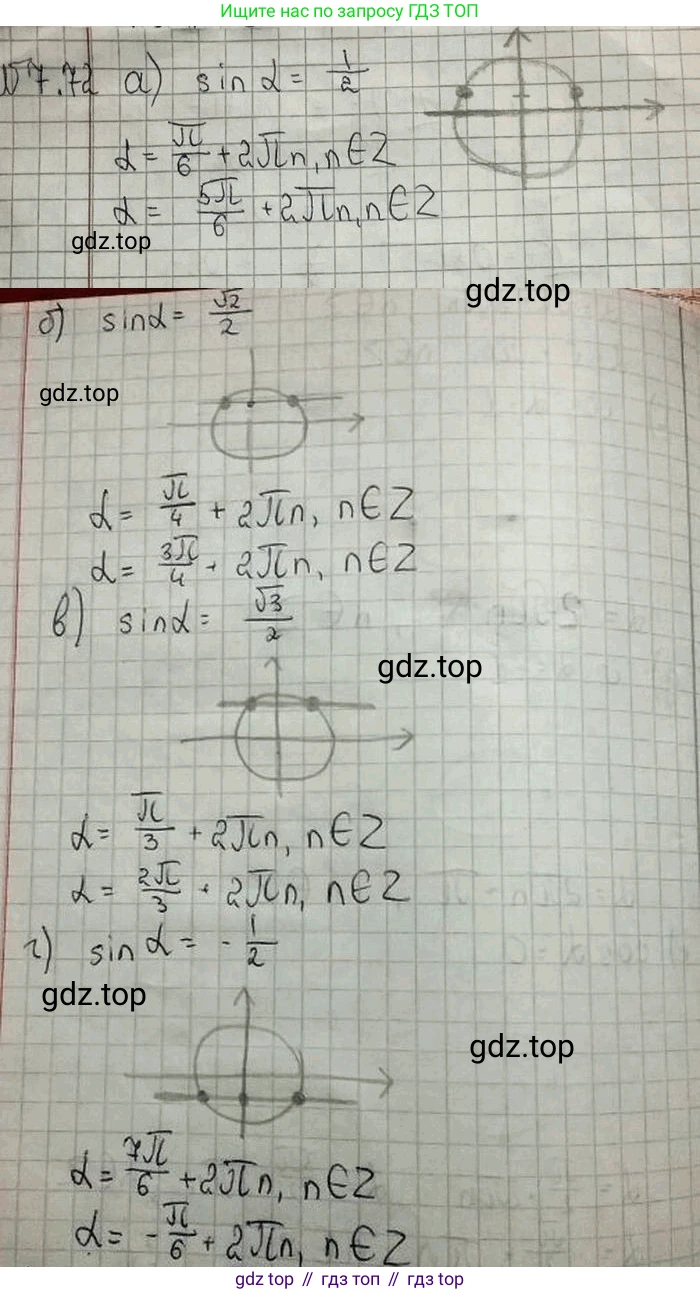 Ищите нас по запросу ГДЗ ТОП
№ 7.72 а) sin α = 1/2
α = π/6 + 2πn, n ∈ Z
α = 5π/6 + 2πn, n ∈ Z
gdz.top
gdz.top
б) sin α = √2/2
gdz.top
α = π/4 + 2πn, n ∈ Z
α = 3π/4 + 2πn, n ∈ Z
в) sin α = √3/2
gdz.top
α = π/3 + 2πn, n ∈ Z
α = 2π/3 + 2πn, n ∈ Z
г) sin α = - 1/2
gdz.top
gdz.top
α = 7π/6 + 2πn, n ∈ Z
α = - π/6 + 2πn, n ∈ Z
gdz top // гдз топ // gdz.top